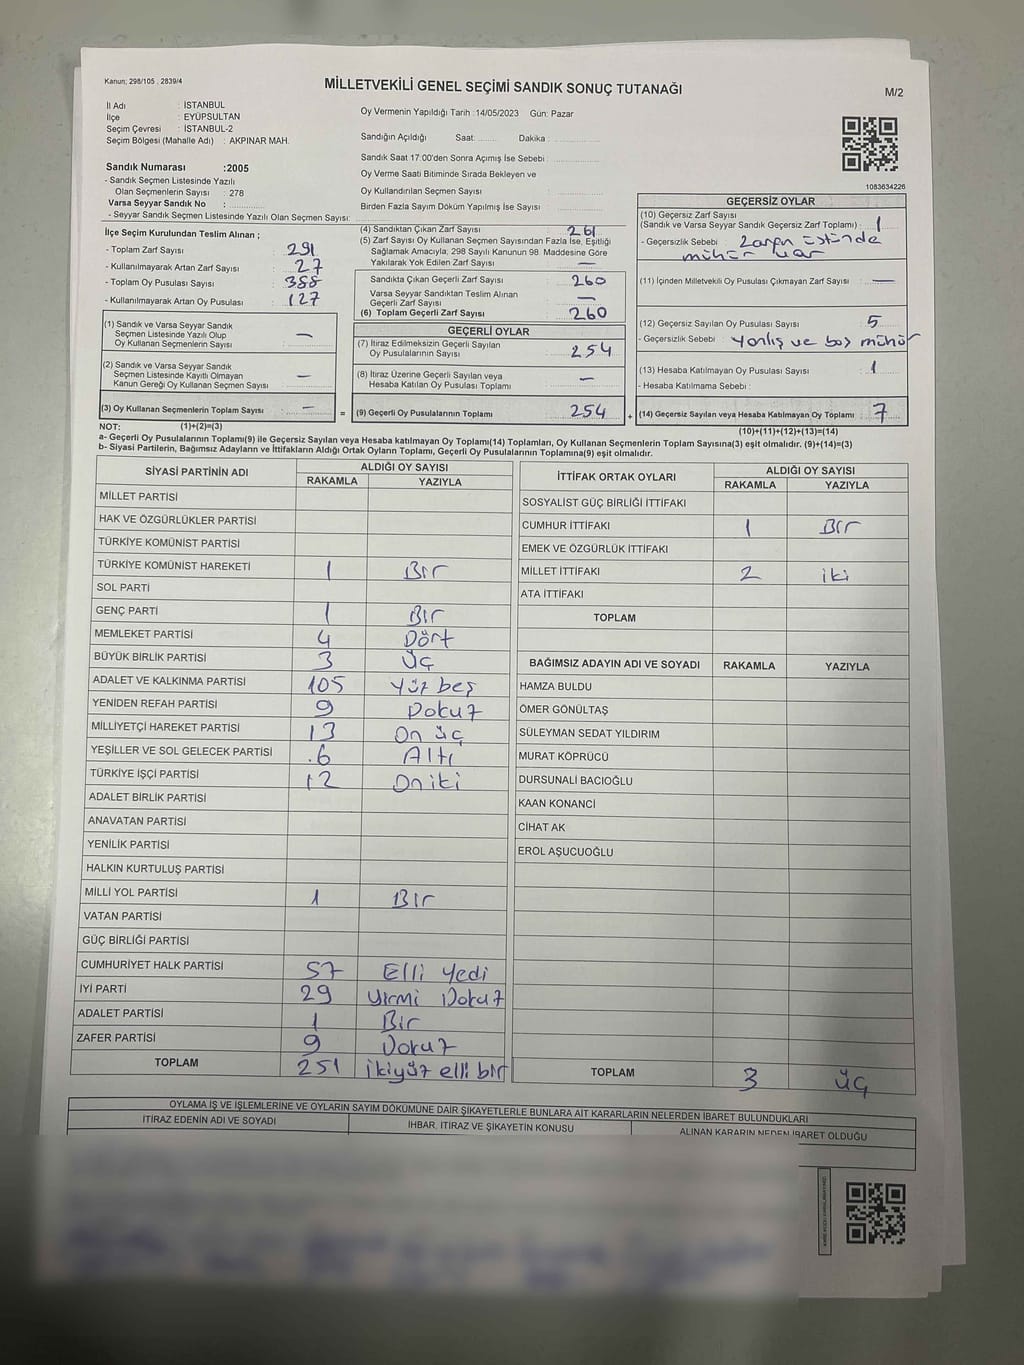 Kanun; 298/105 , 2839/4
MİLLETVEKİLİ GENEL SEÇİMİ SANDIK SONUÇ TUTANAĞI
M/2
İl Adı : İSTANBUL
İlçe : EYÜPSULTAN
Seçim Çevresi : İSTANBUL-2
Seçim Bölgesi (Mahalle Adı) : AKPINAR MAH.
Oy Vermenin Yapıldığı Tarih : 14/05/2023 Gün: Pazar
Sandığın Açıldığı Saat: Dakika :
Sandık Saat 17:00'den Sonra Açımış İse Sebebi :
Oy Verme Saati Bitiminde Sırada Bekleyen ve
Oy Kullandırılan Seçmen Sayısı
Birden Fazla Sayım Döküm Yapılmış İse Sayısı :
Sandık Numarası :2005
- Sandık Seçmen Listesinde Yazılı
Olan Seçmenlerin Sayısı : 278
Varsa Seyyar Sandık No :
- Seyyar Sandık Seçmen Listesinde Yazılı Olan Seçmen Sayısı:
1083634226
İlçe Seçim Kurulundan Teslim Alınan ;
- Toplam Zarf Sayısı : 291
- Kullanılmayarak Artan Zarf Sayısı : 27
- Toplam Oy Pusulası Sayısı : 388
- Kullanılmayarak Artan Oy Pusulası : 127
(1) Sandık ve Varsa Seyyar Sandık
Seçmen Listesinde Yazılı Olup
Oy Kullanan Seçmenlerin Sayısı : —
(2) Sandık ve Varsa Seyyar Sandık
Seçmen Listesinde Kayıtlı Olmayan
Kanun Gereği Oy Kullanan Seçmen Sayısı : —
(3) Oy Kullanan Seçmenlerin Toplam Sayısı : — =
(4) Sandıktan Çıkan Zarf Sayısı : 261
(5) Zarf Sayısı Oy Kullanan Seçmen Sayısından Fazla İse, Eşitliği
Sağlamak Amacıyla; 298 Sayılı Kanunun 98. Maddesine Göre
Yakılarak Yok Edilen Zarf Sayısı : —
Sandıkta Çıkan Geçerli Zarf Sayısı : 260
Varsa Seyyar Sandıktan Teslim Alınan
Geçerli Zarf Sayısı : —
(6) Toplam Geçerli Zarf Sayısı : 260
GEÇERLİ OYLAR
(7) İtiraz Edilmeksizin Geçerli Sayılan
Oy Pusulalarının Sayısı : 254
(8) İtiraz Üzerine Geçerli Sayılan veya
Hesaba Katılan Oy Pusulası Toplamı : —
(9) Geçerli Oy Pusulalarının Toplamı : 254 +
GEÇERSİZ OYLAR
(10) Geçersiz Zarf Sayısı
(Sandık ve Varsa Seyyar Sandık Geçersiz Zarf Toplamı) : 1
- Geçersizlik Sebebi : Zarfın üstünde
mühür var
(11) İçinden Milletvekili Oy Pusulası Çıkmayan Zarf Sayısı : —
(12) Geçersiz Sayılan Oy Pusulası Sayısı : 5
- Geçersizlik Sebebi : Yanlış ve boş mühür
(13) Hesaba Katılmayan Oy Pusulası Sayısı : 1
- Hesaba Katılmama Sebebi :
(14) Geçersiz Sayılan veya Hesaba Katılmayan Oy Toplamı : 7
NOT: (1)+(2)=(3)
(10)+(11)+(12)+(13)=(14)
a- Geçerli Oy Pusulalarının Toplamı(9) ile Geçersiz Sayılan veya Hesaba katılmayan Oy Toplamı(14) Toplamları, Oy Kullanan Seçmenlerin Toplam Sayısına(3) eşit olmalıdır. (9)+(14)=(3)
b- Siyasi Partilerin, Bağımsız Adayların ve İttifakların Aldığı Ortak Oyların Toplamı, Geçerli Oy Pusulalarının Toplamına(9) eşit olmalıdır.
SİYASİ PARTİNİN ADI ALDIĞI OY SAYISI
RAKAMLA YAZIYLA
MİLLET PARTİSİ
HAK VE ÖZGÜRLÜKLER PARTİSİ
TÜRKİYE KOMÜNİST PARTİSİ
TÜRKİYE KOMÜNİST HAREKETİ 1 Bir
SOL PARTİ
GENÇ PARTİ 1 Bir
MEMLEKET PARTİSİ 4 Dört
BÜYÜK BİRLİK PARTİSİ 3 Üç
ADALET VE KALKINMA PARTİSİ 105 Yüz beş
YENİDEN REFAH PARTİSİ 9 Dokuz
MİLLİYETÇİ HAREKET PARTİSİ 13 On üç
YEŞİLLER VE SOL GELECEK PARTİSİ 6 Altı
TÜRKİYE İŞÇİ PARTİSİ 12 On iki
ADALET BİRLİK PARTİSİ
ANAVATAN PARTİSİ
YENİLİK PARTİSİ
HALKIN KURTULUŞ PARTİSİ
MİLLİ YOL PARTİSİ 1 Bir
VATAN PARTİSİ
GÜÇ BİRLİĞİ PARTİSİ
CUMHURİYET HALK PARTİSİ 57 Elli Yedi
İYİ PARTİ 29 Yirmi Dokuz
ADALET PARTİSİ 1 Bir
ZAFER PARTİSİ 9 Dokuz
TOPLAM 251 ikiyüz elli bir
İTTİFAK ORTAK OYLARI ALDIĞI OY SAYISI
RAKAMLA YAZIYLA
SOSYALİST GÜÇ BİRLİĞİ İTTİFAKI
CUMHUR İTTİFAKI 1 Bir
EMEK VE ÖZGÜRLÜK İTTİFAKI
MİLLET İTTİFAKI 2 iki
ATA İTTİFAKI
TOPLAM
BAĞIMSIZ ADAYIN ADI VE SOYADI RAKAMLA YAZIYLA
HAMZA BULDU
ÖMER GÖNÜLTAŞ
SÜLEYMAN SEDAT YILDIRIM
MURAT KÖPRÜCÜ
DURSUNALİ BACIOĞLU
KAAN KONANCİ
CİHAT AK
EROL AŞUCUOĞLU
TOPLAM 3 üç
OYLAMA İŞ VE İŞLEMLERİNE VE OYLARIN SAYIM DÖKÜMÜNE DAİR ŞİKAYETLERLE BUNLARA AİT KARARLARIN NELERDEN İBARET BULUNDUKLARI
İTİRAZ EDENİN ADI VE SOYADI İHBAR, İTİRAZ VE ŞİKAYETİN KONUSU ALINAN KARARIN NEDEN İBARET OLDUĞU